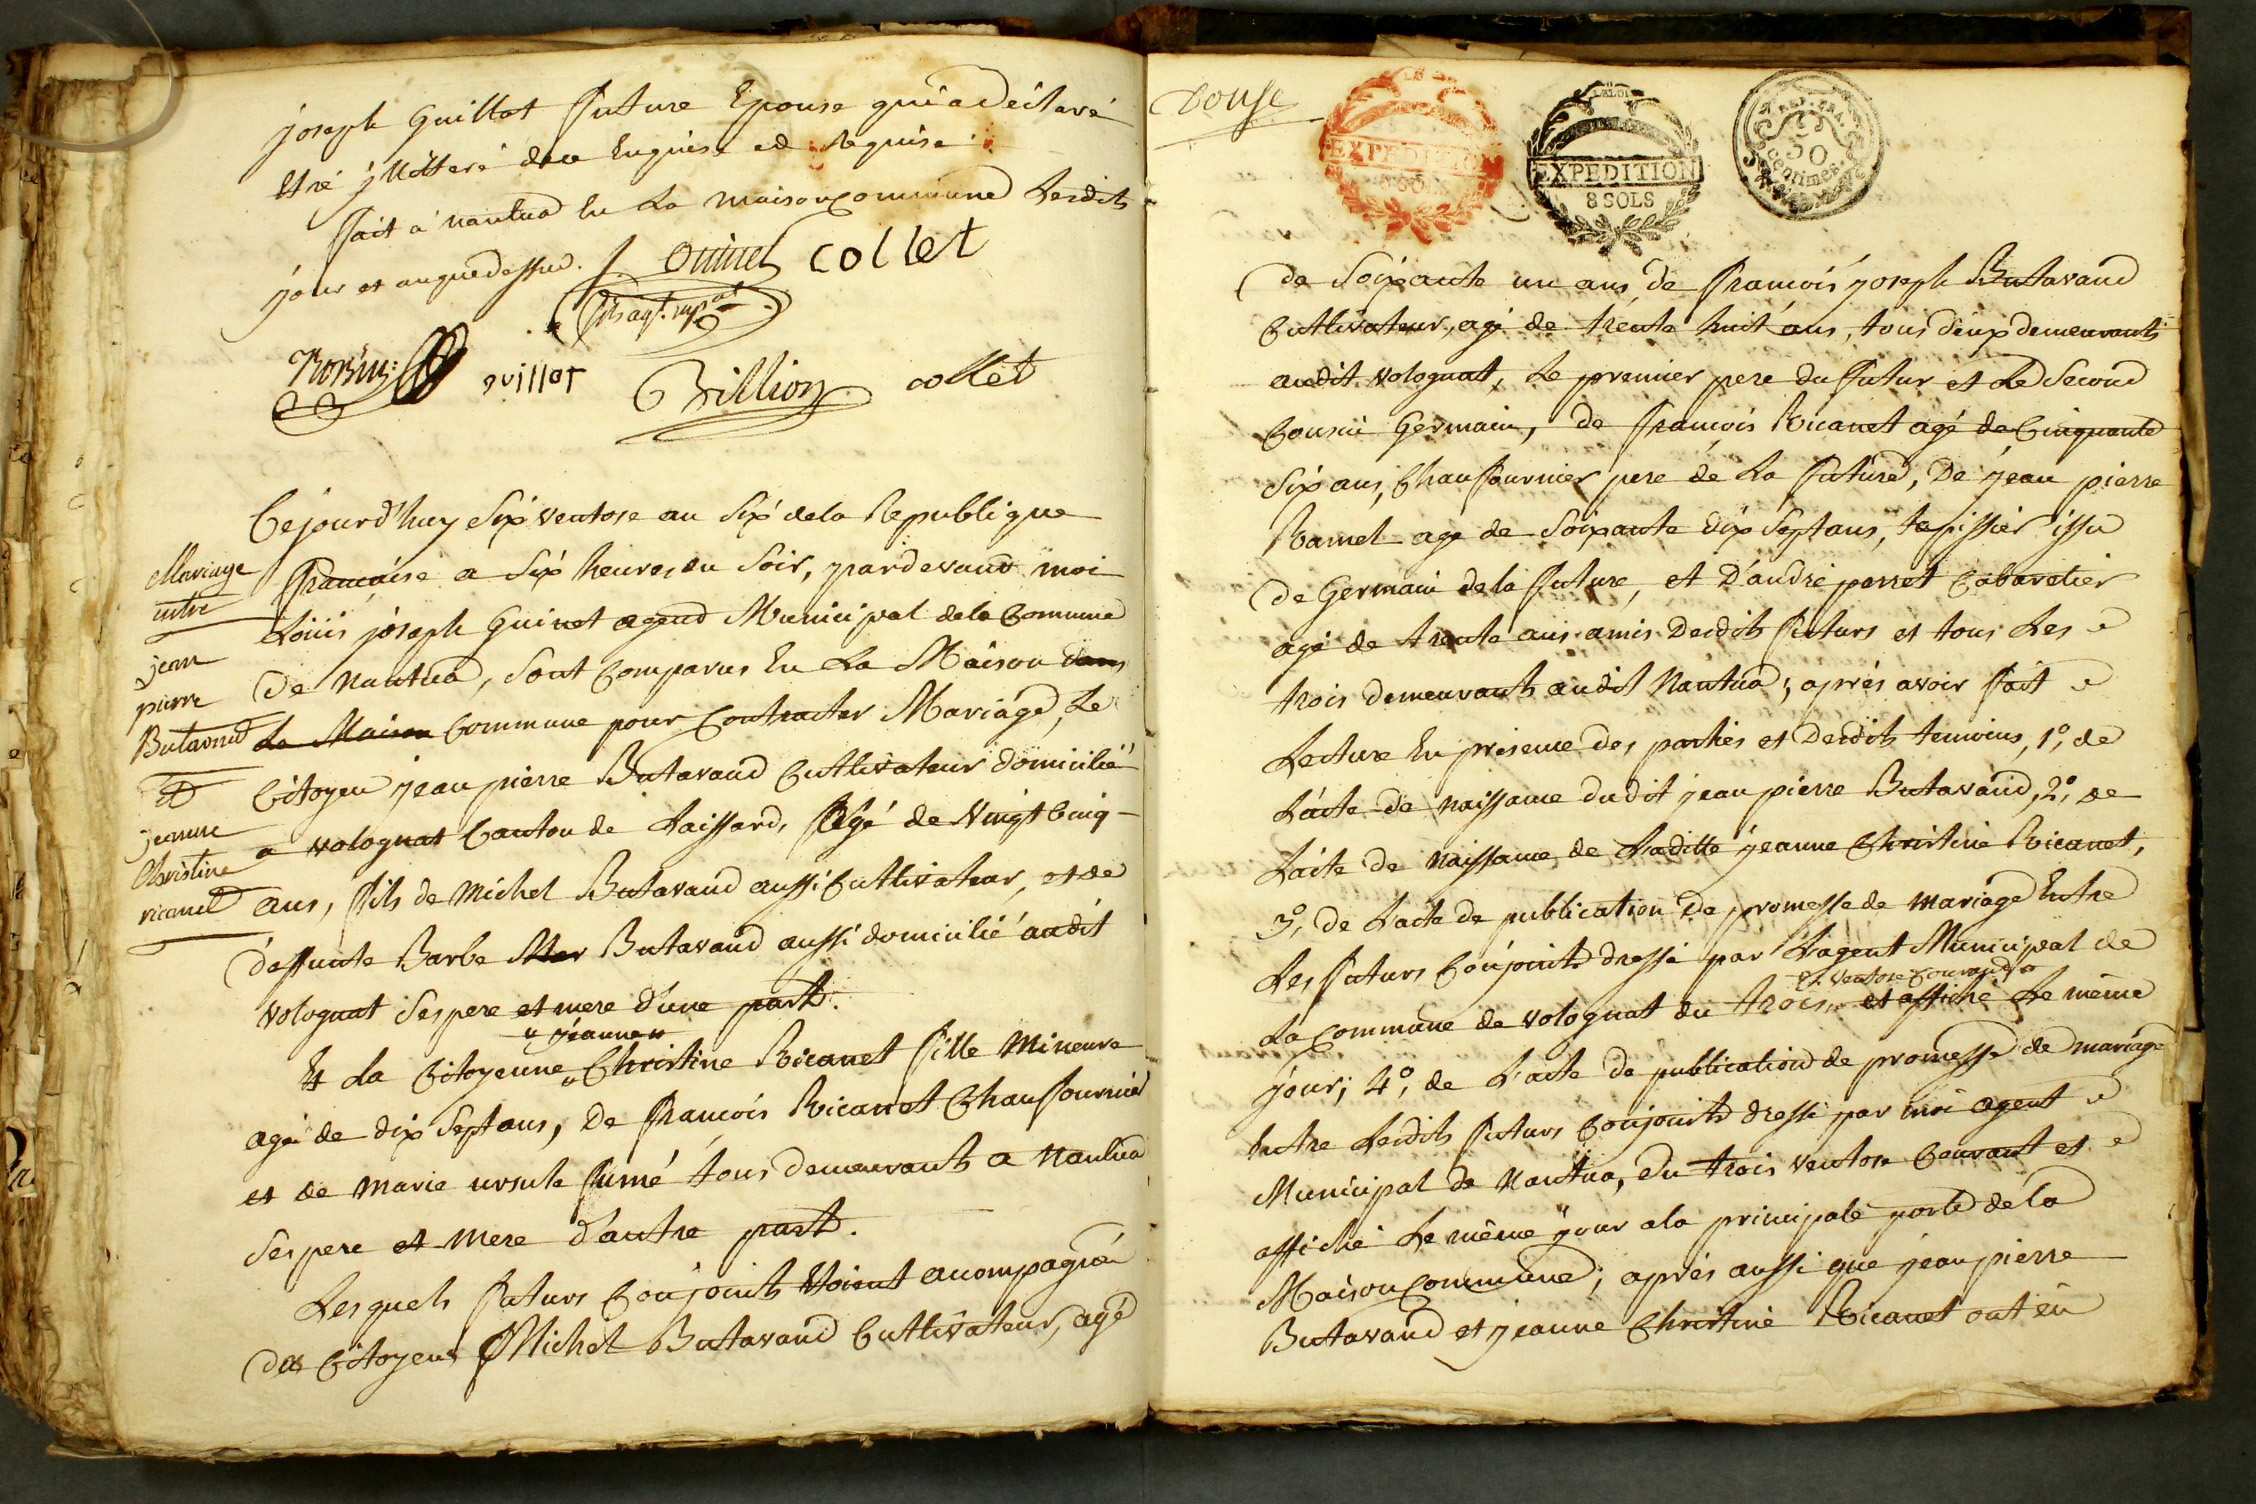 joseph Guillot future Epouse qui a déclaré
Etre jllitteré deu Enquise et Requise
fait à nantua En La maison commune Lesdits
jour et an que dessus. Guinet collet
ag.t mp.al
Robin guillot Billion collet
Mariage
entre
jean
pierre
Butavand
et
jeanne
Christine
ricanet
Cejourd'huy Six ventose an Six dela Republique
française a Six heures du Soir, pardevand moi
Loüis joseph Guinet agend Municipal dela Commune
De Nantua, Sont Comparus En La Maison dans
La Maison Commune pour Contracter Mariage, Le
Citoyen jean pierre Butavand Cultivateur domicilié
a volognat Canton de Laissard, Agé de Vingt Cinq-
ans, fils de Michel Butavand aussi Cultivateur, et de
deffunte Barbe Butavand aussi domicilié audit
volognat Ses pere et mere d'une part.
"jeanne"
Et La Citoyenne " Christine Ricanet fille Mineure
agé de dix Sept ans, De françois Ricanet Chaufournier
et de Marie ursule fumé tous demeurants a Nantua
Ses pere et Mere d'autre part.
Lesquels futurs Conjoints Etoient acompagnés
des Citoyens Michel Butavand Cultivateur, agé
Douse
EXPEDITION
8 SOLS
EXPEDITION
8 SOLS
REP. FRA.
50
centimes
de Soixante un ans, de françois joseph Butavand
Cultivateur, agé de trente huit ans, tous deux demeurants
audit volognat, Le premier pere du futur et Le Second
Cousin Germain, de françois Ricanet agé de Cinquante
Six ans, Chaufournier pere de La future, De jean pierre
Ramel agé de Soixante dix Sept ans, tapissier issu
de Germain dela future, et D'andré perret Cabaretier
agé de trente ans amis Desdits futurs et tous Les
trois demeurants audit Nantua; aprés avoir fait
Lecture En presence des parties et Desdits temoins, 1°, de
L'acte De naissance dudit jean pierre Butavand, 2°, de
L'acte de Naissance de Laditte jeanne Christine Ricanet,
3°, de L'acte de publication De promesse de mariage Entre
Les futurs Conjoints dressé par L'agent Municipal de
ventose Courand
La Commune de volognat du trois, et affiché Le même
jour; 4°, de L'acte de publication de promesse de mariage
Entre Lesdits futurs Conjoints dressé par moi agent
Municipal de Nantua, du trois ventose Courant et
affiché Le même jour a la principale porte de la
Maison Commune; après aussi que jean pierre
Butavand et jeanne Christine Ricanet ont eü